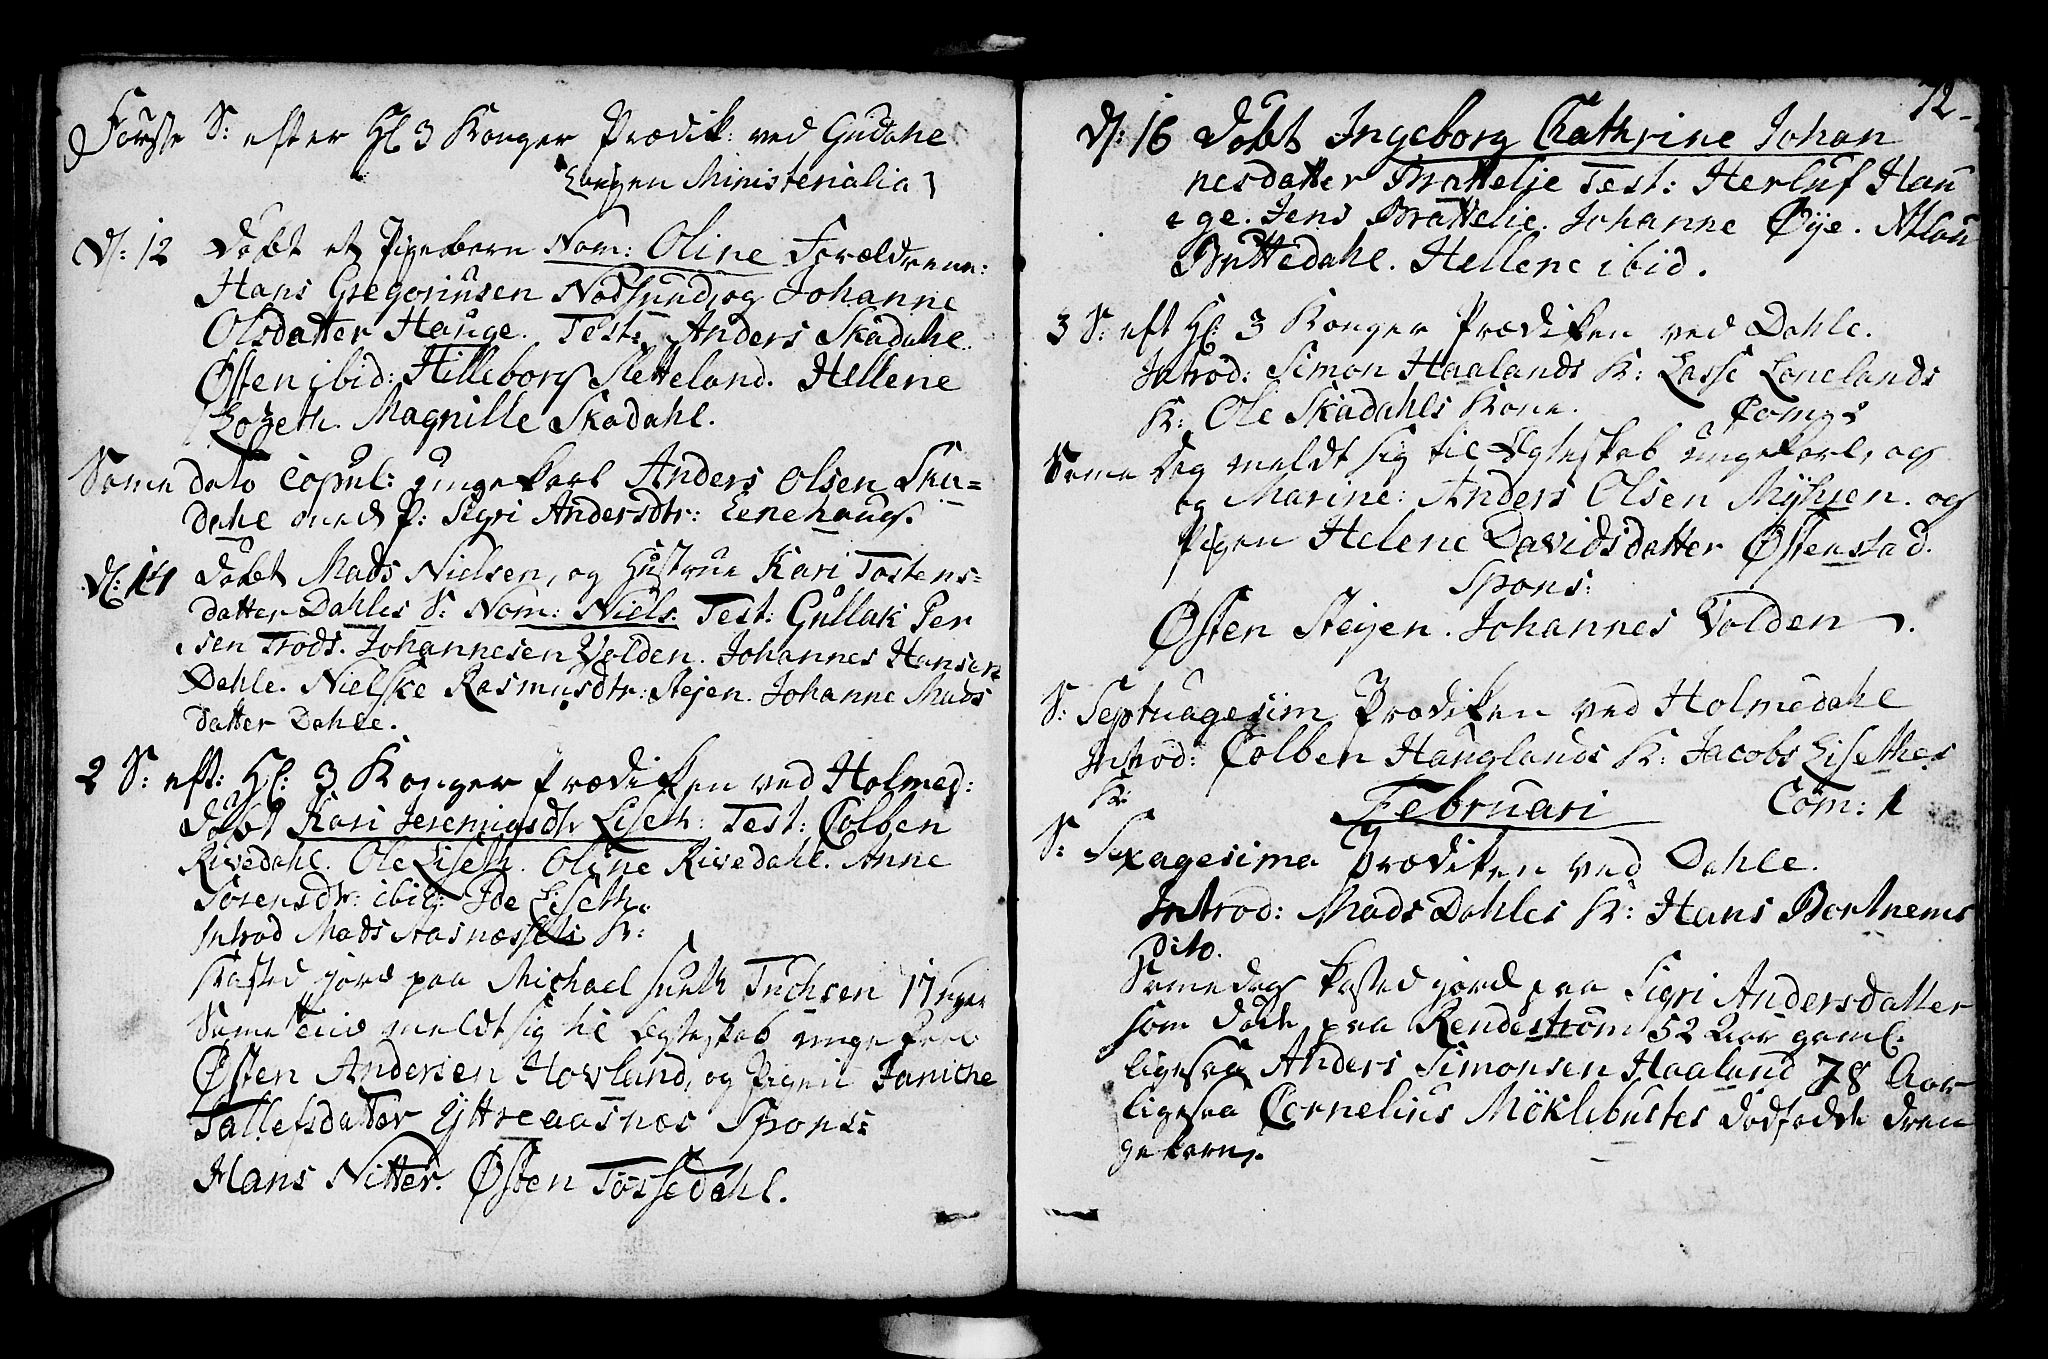 Første S: efter Hl 3 Konger Prædik: ved Gudahl
Ingen Ministerialia
D: 12 Døbt et Pigebarn Nom: Oline Forældrene:
Hans Gregoriusen Nødsund, og Johanne
Olsdatter Hauge. Test: Anders Skadahl
Østen ibid: Hilleborg Sletteland. Hellene
Lozeth. Magnille Skadahl.
Same dato Copul: ungekarl Anders Olsen Ska=
dahl med P: Sigri Andersdtr: Lenehaug.
D: 14 Døbt Mads Nielsen, og Hustrue Kari Tostens=
datter Dahles S: Nom: Niels. Test: Gullak Per
sen Trods. Johannesen Volden. Johannes Hansen
Dahle. Nielske Rasmusdtr: Steien. Johanne Mads
datter Dahle.
2 S: eft: Hl: 3 Konger Prædiken ved Holmed:
Døbt Kari Jeremiasdtr Liseth: Test: Colben
Rivedahl. Ole Liseth. Oline Rivedahl. Anne
Sørensdtr: ibid: Ide Liseth.
Introd Mads Aasnæs K:
Kasted jord paa Michael Tuchsen 17 uger
Same Tiid meldt sig til Ægteskab unge Karl
Østen Andersen Hovland, og Pigen Janiche
Tallefsdatter Yttreaasnæs Spons:
Hans Nitter. Østen Tossedahl.
72
D: 16 Døbt Ingeborg Chathrine Johan
nesdatter Brattelie Test: Herluf Hau
ge. Jens Brattelie. Johanne Øye. Atlau
Bruttedahl. Hellene ibid.
3 S: eft Hl: 3 Konger Prædiken ved Dahle.
Introd: Simon Haalands K: Lasse Lonelands
K: Ole Skadahls Kone.
Same dag meldt sig til Ægteskab ungekarl, og
og Marine: Anders Olsen Myhren. og
Pigen Helene Davidsdatter Østenstad.
Spons:
Østen Steien. Johannes Volden.
S: Septuagesim Prædiken ved Holmedahl
Introd: Colben Hauglands K: Jacobs Lisethes
K:
Februari Com: 1
S: Sexagesima Prædiken ved Dahle.
Introd: Mads Dahles K: Hans Bortnems
dito.
Same dag kasted jord paa Sigri Andersdatter
som døde paa Rendestrøm 52 Aar gaml:
ligesaa Anders Simonsen Haaland 78 Aar
ligesaa Cornelius Möklebustes dødfødde dren
gebarn.